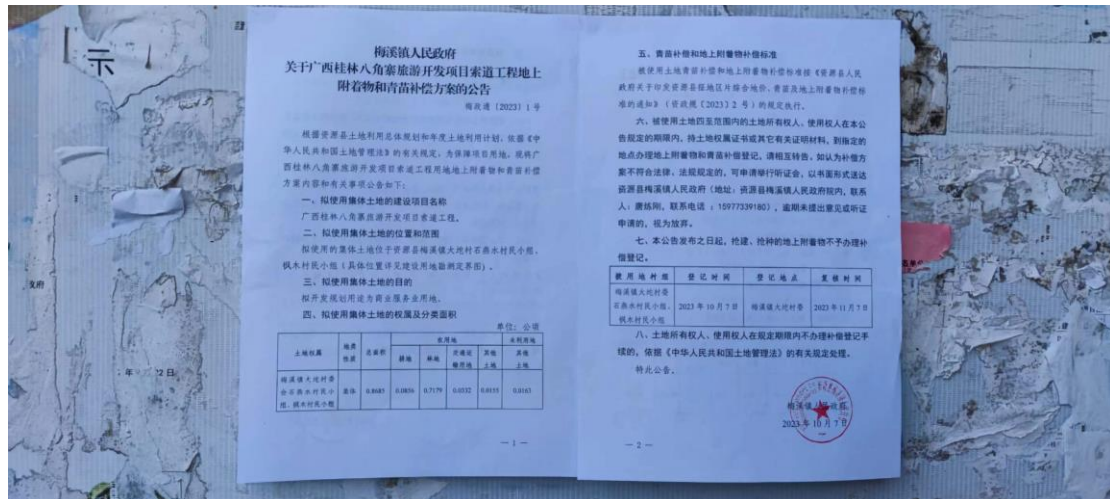 示
梅溪镇人民政府
关于广西桂林八角寨旅游开发项目索道工程地上
附着物和青苗补偿方案的公告
梅政通〔2023〕1号
根据资源县土地利用总体规划和年度土地利用计划，依据《中
华人民共和国土地管理法》的有关规定，为保障项目用地，现将广
西桂林八角寨旅游开发项目索道工程用地地上附着物和青苗补偿
方案内容和有关事项公告如下：
一、拟使用集体土地的建设项目名称
广西桂林八角寨旅游开发项目索道工程。
二、拟使用集体土地的位置和范围
拟使用的集体土地位于资源县梅溪镇大坨村石燕水村民小组、
枫木村民小组（具体位置详见建设用地勘测定界图）。
三、拟使用集体土地的目的
拟开发规划用途为商业服务业用地。
四、拟使用集体土地的权属及分类面积
单位：公顷
土地权属 地类性质 总面积 农用地 未利用地
耕地 林地 交通运输用地 其他土地 其他土地
梅溪镇大坨村委
会石燕水村民小
组、枫木村民小组
集体 0.8685 0.0856 0.7179 0.0332 0.0155 0.0163
— 1 —
五、青苗补偿和地上附着物补偿标准
被使用土地青苗补偿和地上附着物补偿标准按《资源县人民
政府关于印发资源县征地区片综合地价、青苗及地上附着物补偿标
准的通知》（资政规〔2023〕2 号）的规定执行。
六、被使用土地四至范围内的土地所有权人、使用权人在本公
告规定的期限内，持土地权属证书或其它有关证明材料，到指定的
地点办理地上附着物和青苗补偿登记，请相互转告。如认为补偿方
案不符合法律、法规规定的，可申请举行听证会，以书面形式送达
资源县梅溪镇人民政府（地址：资源县梅溪镇人民政府院内，联系
人：唐炼刚，联系电话：15977339180），逾期未提出意见或听证
申请的，视为放弃。
七、本公告发布之日起，抢建、抢种的地上附着物不予办理补
偿登记。
被用地村组 登记时间 登记地点 复核时间
梅溪镇大坨村委
石燕水村民小组、
枫木村民小组
2023年10月7日 梅溪镇大坨村委 2023年11月7日
八、土地所有权人、使用权人在规定期限内不办理补偿登记手
续的，依据《中华人民共和国土地管理法》的有关规定处理。
特此公告。
梅溪镇人民政府
2023年10月7日
— 2 —